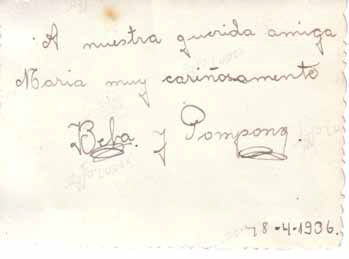 A nuestra querida amiga
Maria muy cariñosamente
Beba. y Pompona.
8-4-1936.